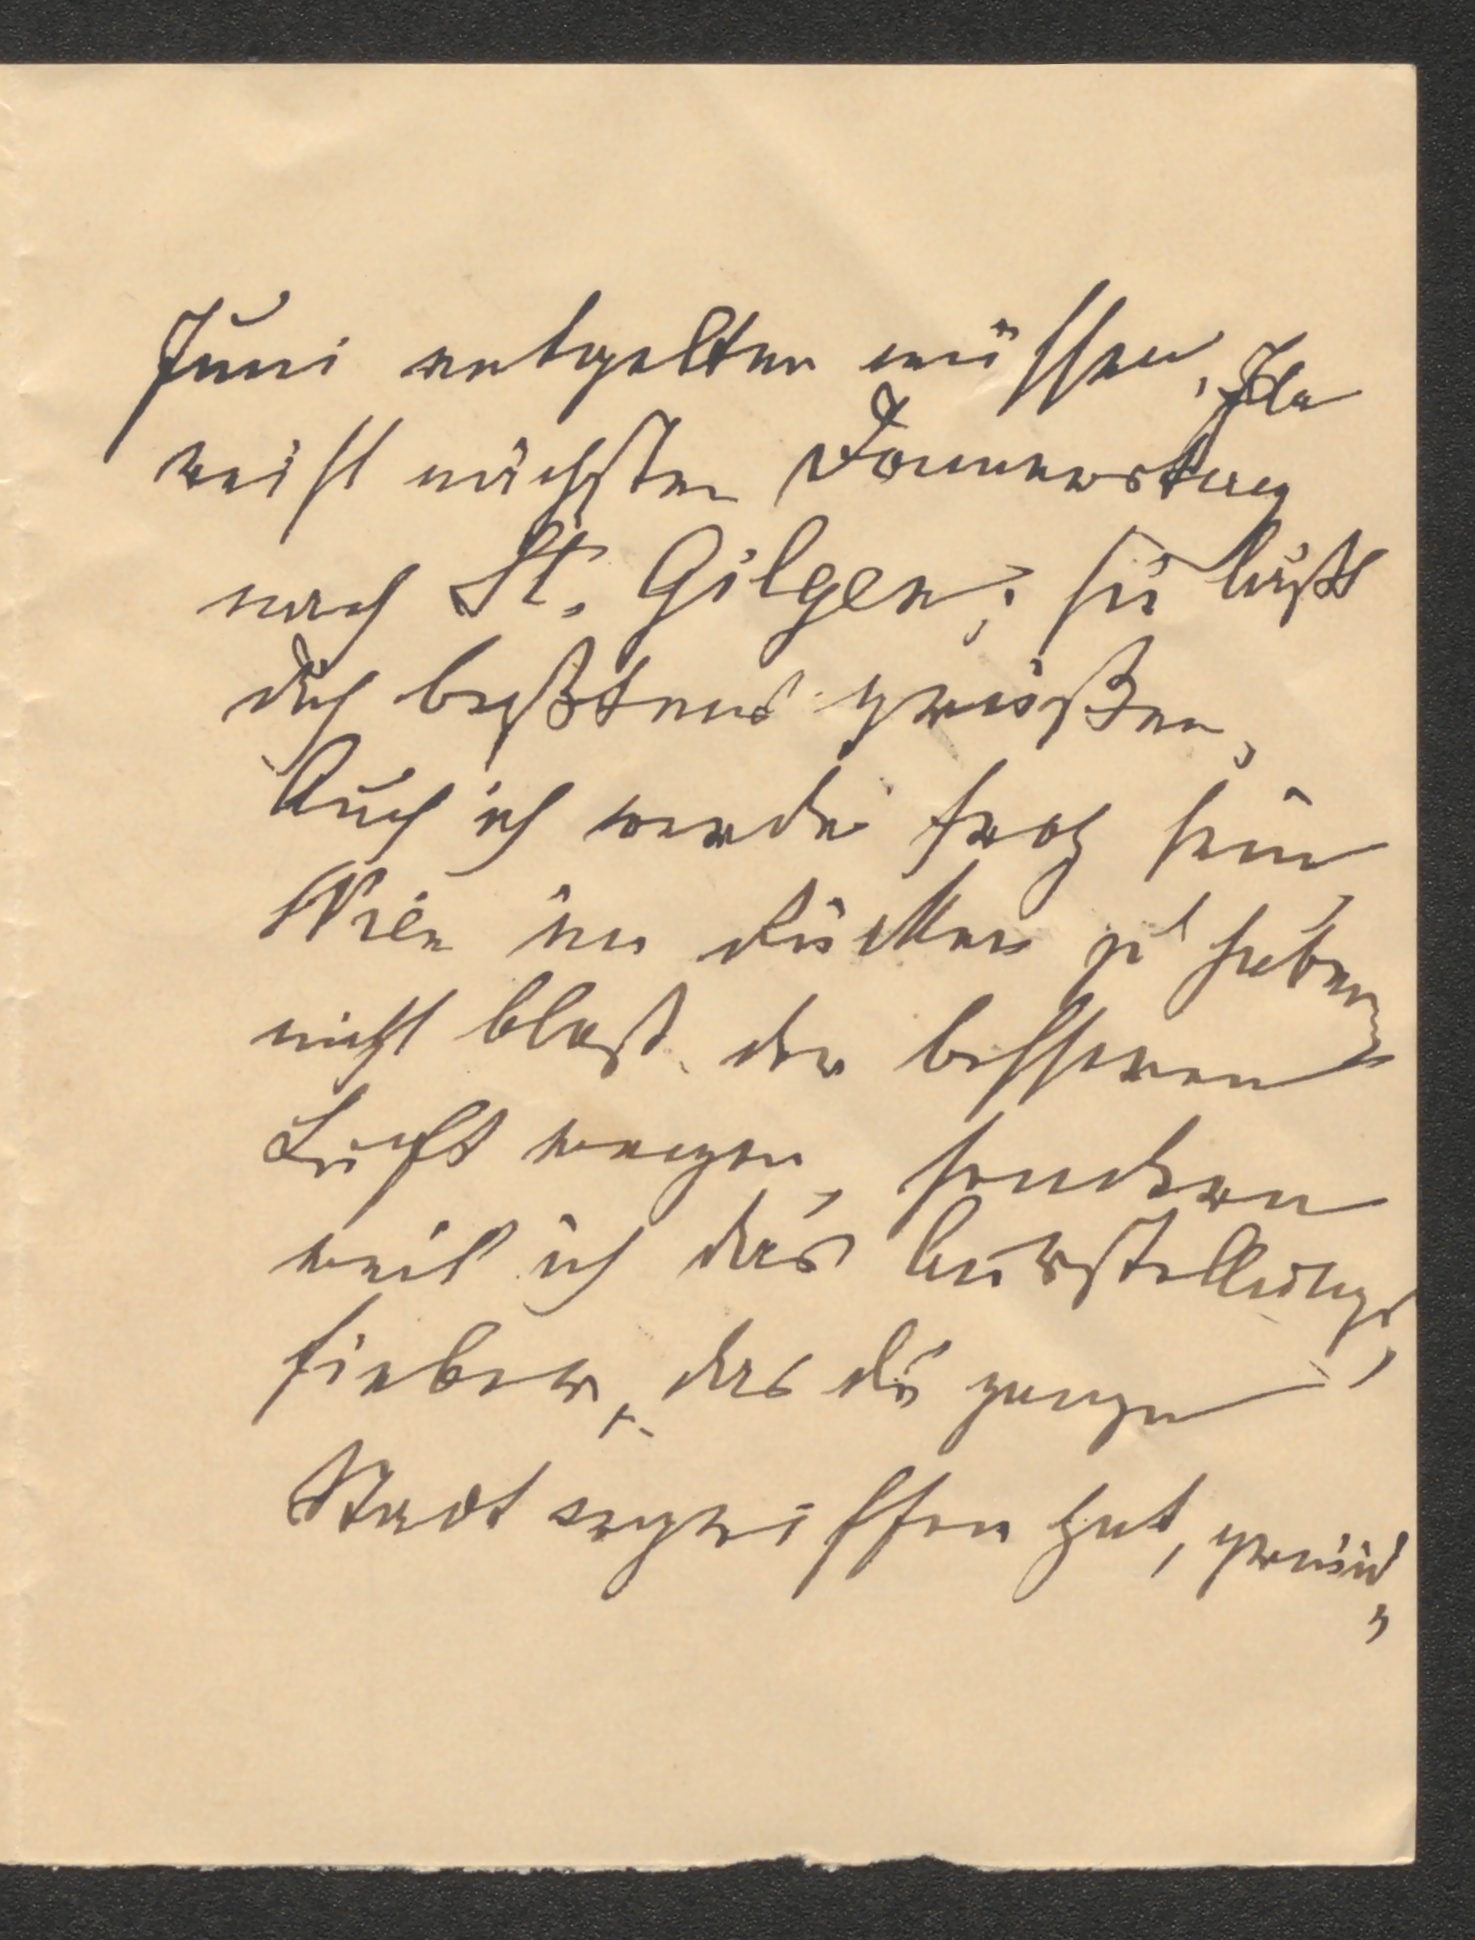 Juni entgelten müssen. Ida
reist nächsten Donnerstag
nach St. Gilgen; sie läßt
dich beßtens grüßen.
Auch ich werde froh sein
Wien im Rücken zu haben,
nicht bloß der besseren
Luft wegen, sondern
weil ich das Ausstellungs-
fieber, das die ganze
Stadt ergriffen hat, gründ-